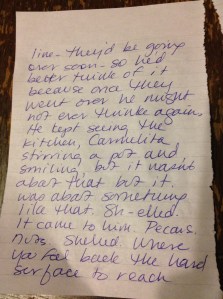 line - they'd be going
over soon - so he'd
better think of it
because once they
went over he might
not ever thinke again.
He kept seeing the
kitchen, Carmelita
stirring a pot and
smiling, but it wasn't
about that but it
was about something
like that. Sh-elled.
It came to him. Pecans.
nuts shelled. Where
you feel back the hard
surface to reach